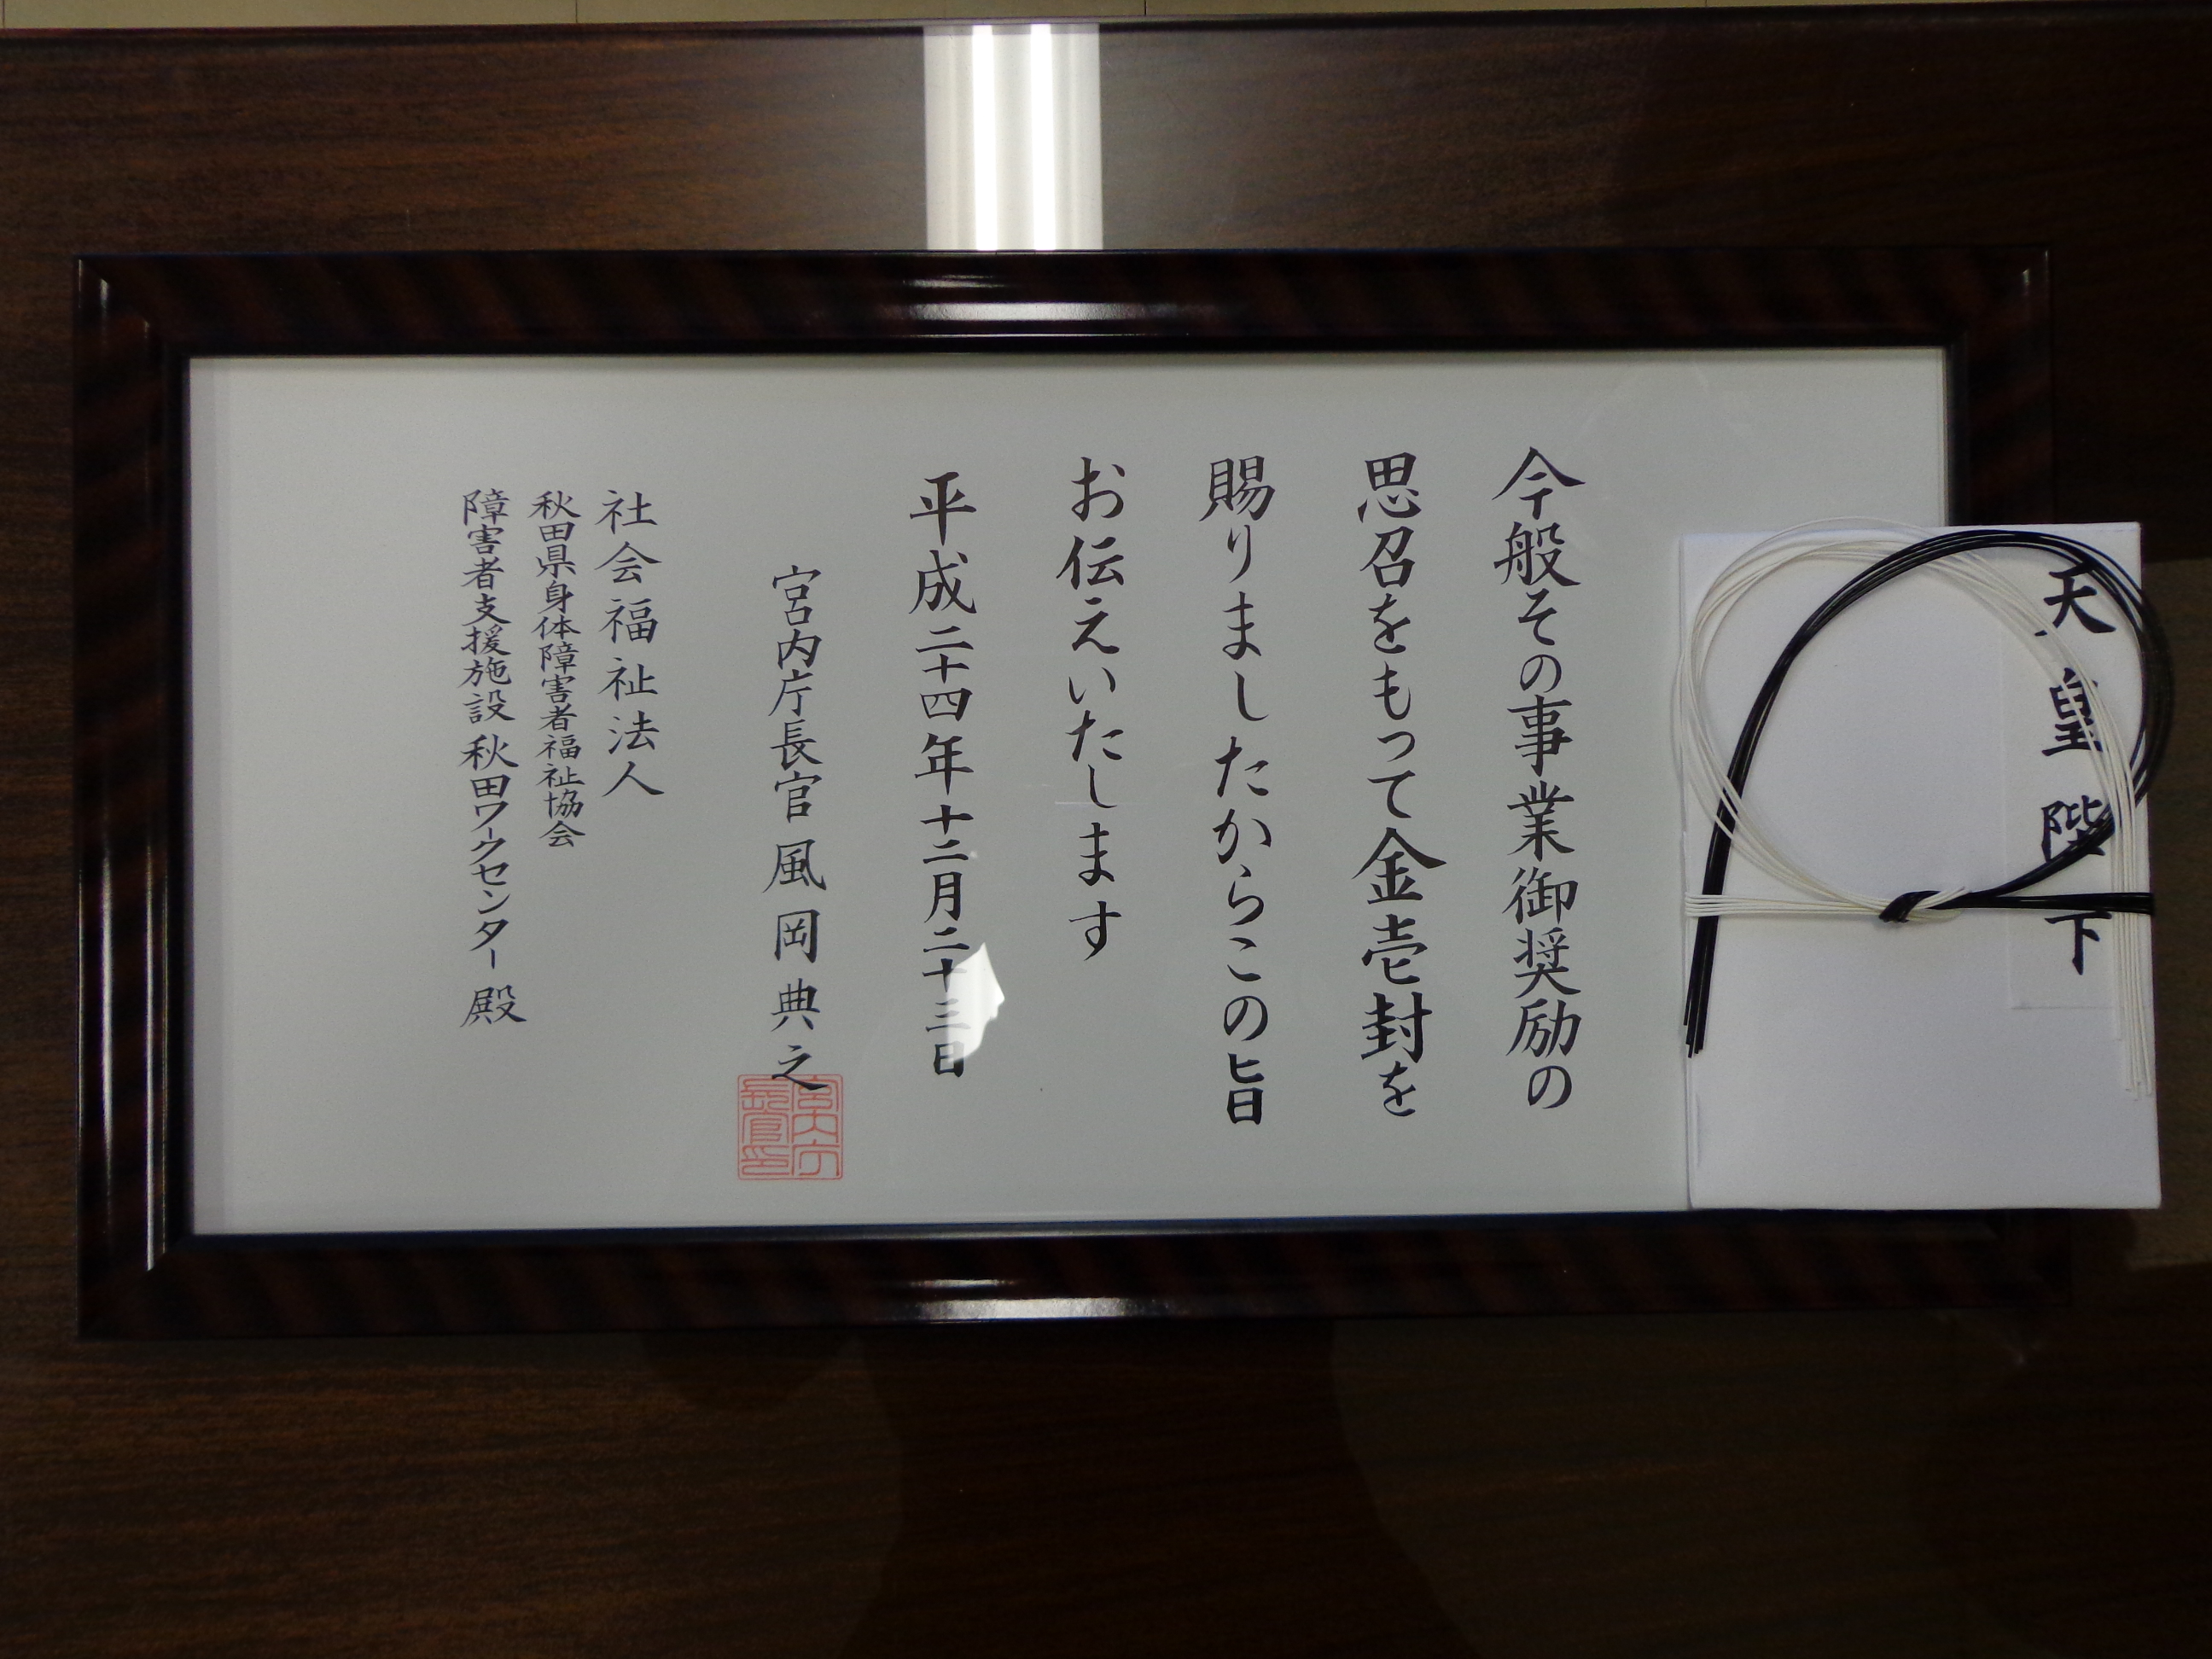 天皇陛下
今般その事業御奨励の
思召をもって金壱封を
賜りましたからこの旨
お伝えいたします
平成二十四年十二月二十三日
宮内庁長官 風岡典之
宮内庁長官印
社会福祉法人
秋田県身体障害者福祉協会
障害者支援施設 秋田ワークセンター 殿